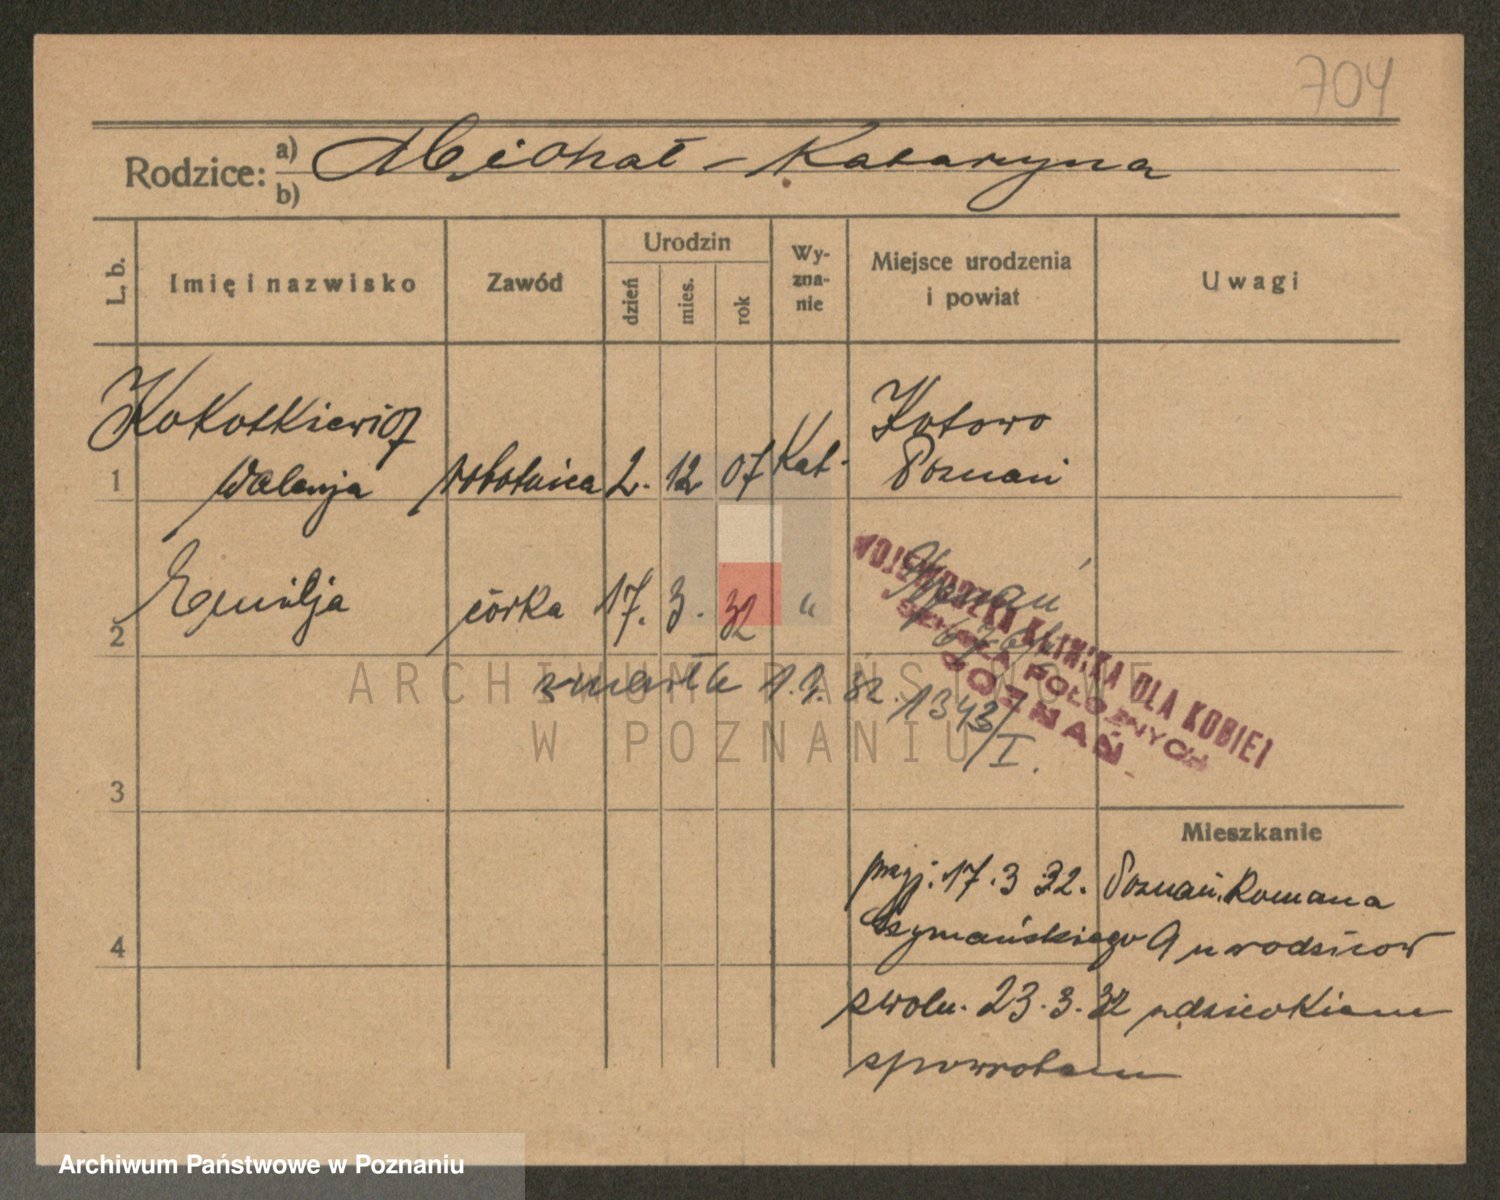 704
Rodzice: a) Michał – Katarzyna
b)
L. b.
Imię i nazwisko
Zawód
Urodzin
dzień
mies.
rok
Wy-
zna-
nie
Miejsce urodzenia
i powiat
Uwagi
Kokotkiewicz
Kotowo
1 Walerja robotnica 2. 12 07 Kat. Poznań
2 Emilja córka 17. 3. 32 " Poznań
WOJEWÓDZKA KLINIKA DLA KOBIET
SZKOŁA POŁOŻNYCH
POZNAŃ
zmarła 1. 9. 32. 1343/I.
ARCHIWUM PAŃSTWOWE
W POZNANIU
3
Mieszkanie
przyj. 17. 3 32. Poznań. Romana
4 Szymańskiego 9 u rodziców
zwoln. 23. 3. 32 z dzieckiem
spowrotem
Archiwum Państwowe w Poznaniu